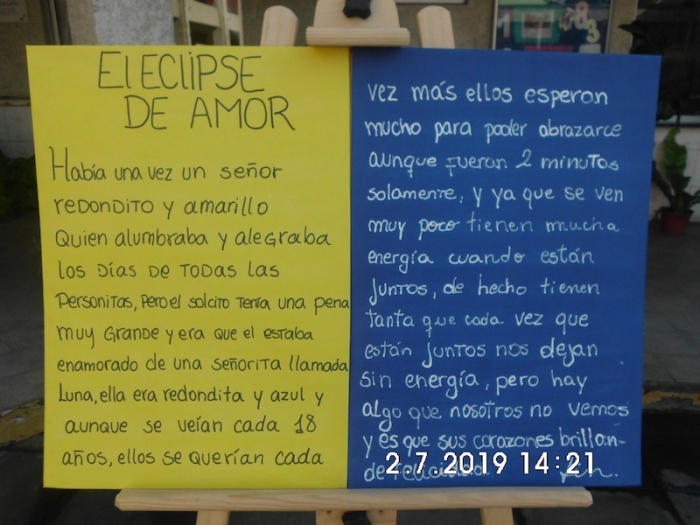 El ECLIPSE
DE AMOR
Había una vez un señor
redondito y amarillo
Quien alumbraba y alegraba
los DÍas DE TODAS LAS
Personitas, Pero el solcito Tenía una pena
muy Grande y era que el estaba
enamorado de una señorita llamada
Luna, ella era redondita y azul y
aunque se veían cada 18
años, ellos se querían cada
vez más ellos esperan
mucho para poder abrazarce
aunque fueran 2 minutos
solamente, y ya que se ven
muy poco tienen mucha
energía cuando están
juntos, de hecho tienen
tanta que cada vez que
están juntos nos dejan
sin energía, pero hay
algo que nosotros no vemos
y es que sus corazones brillan-
de felicidad. Fin.
2.7.2019 14:21